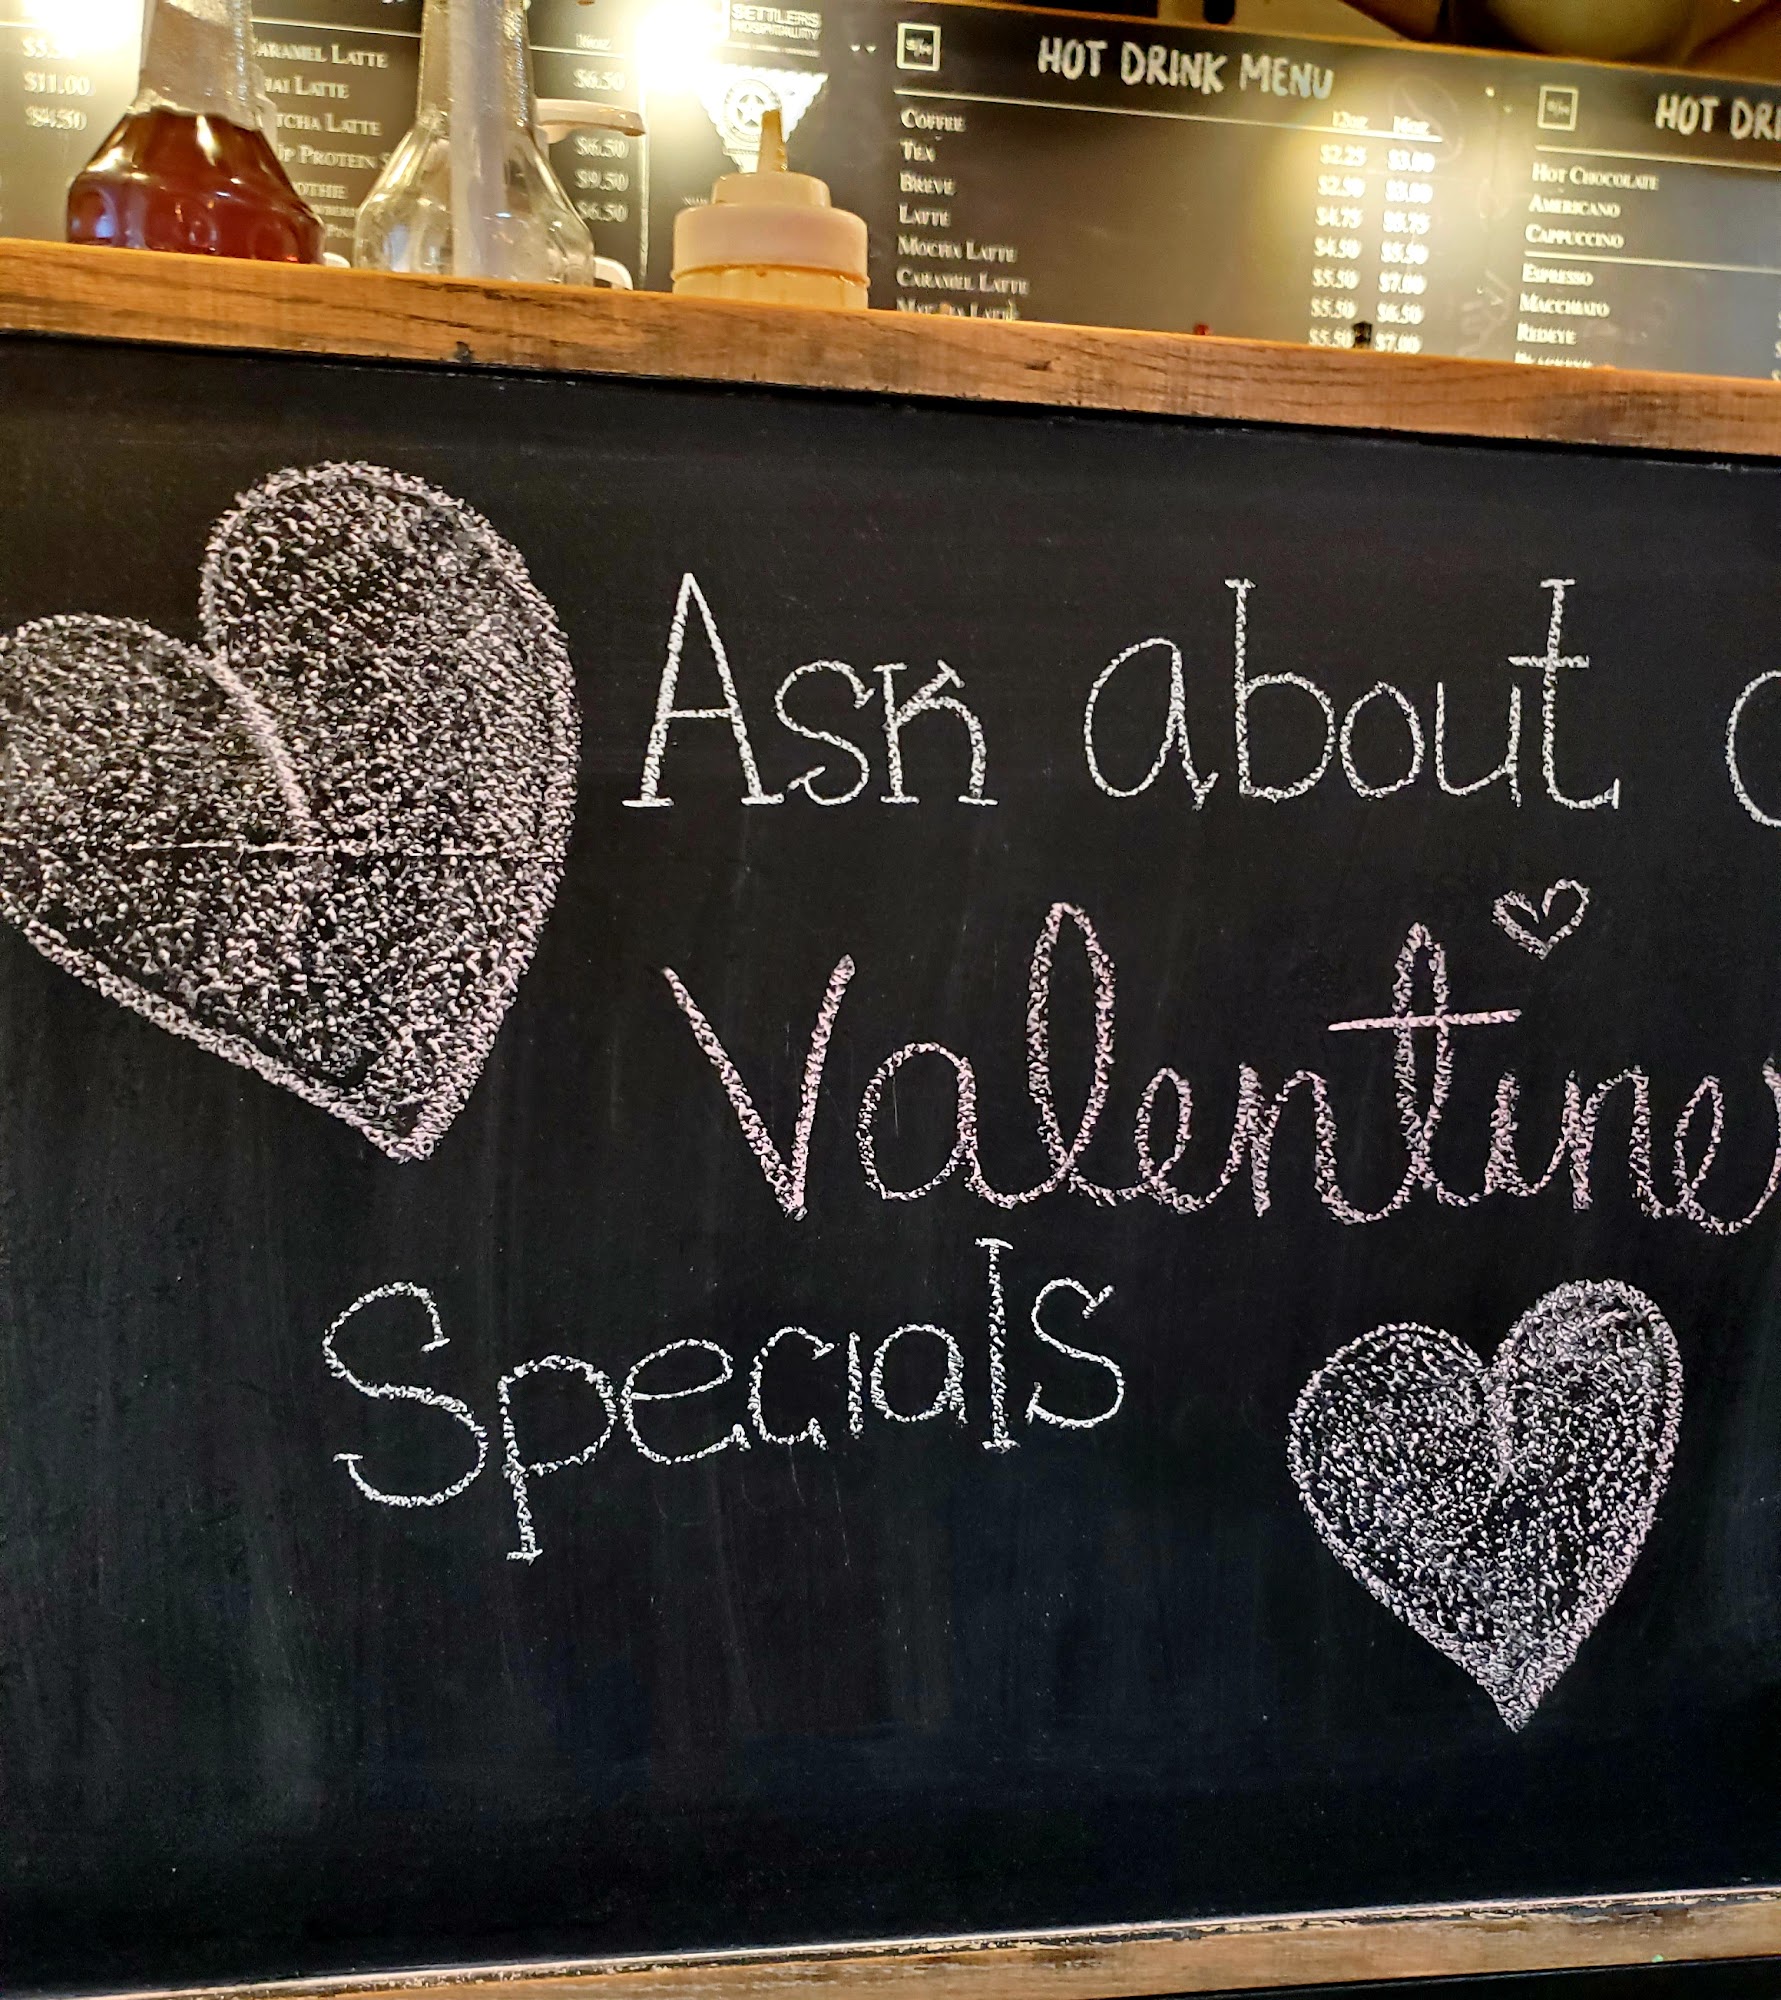 $11.00
$4.50
Caramel Latte
Latte
Latte
Protein
$6.50
$6.50
$9.50
$6.50
SETTLERS
HOSPITALITY
HOT DRINK MENU
12oz 16oz
Coffee $2.25 $3.00
Tea $2.50 $3.00
Breve $4.75 $5.75
Latte $4.50 $5.50
Mocha Latte $5.50 $7.00
Caramel Latte $5.50 $6.50
Latte $5.50 $7.00
HOT
Hot Chocolate
Americano
Cappuccino
Espresso
Macchiato
Redeye
Ask about
Valentine
Specials